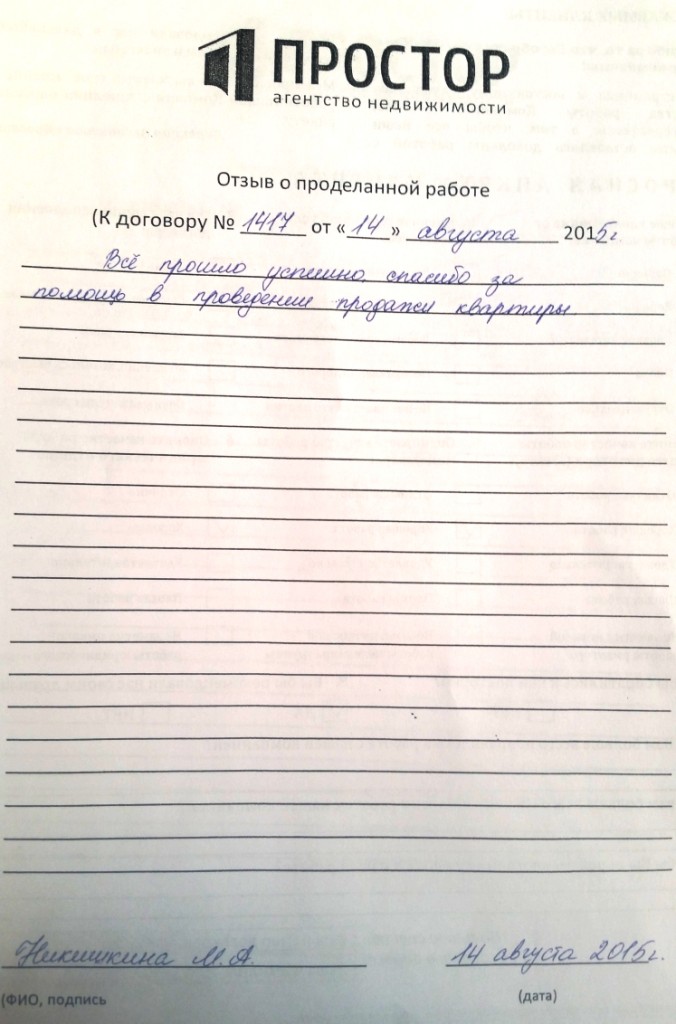 ПРОСТОР
агентство недвижимости
Отзыв о проделанной работе
(К договору № 1417 от « 14 » августа 2015г
Всё прошло успешно, спасибо за
помощь в проведении продажи квартиры.
Никишкина М.А. 14 августа 2015г.
(ФИО, подпись (дата)